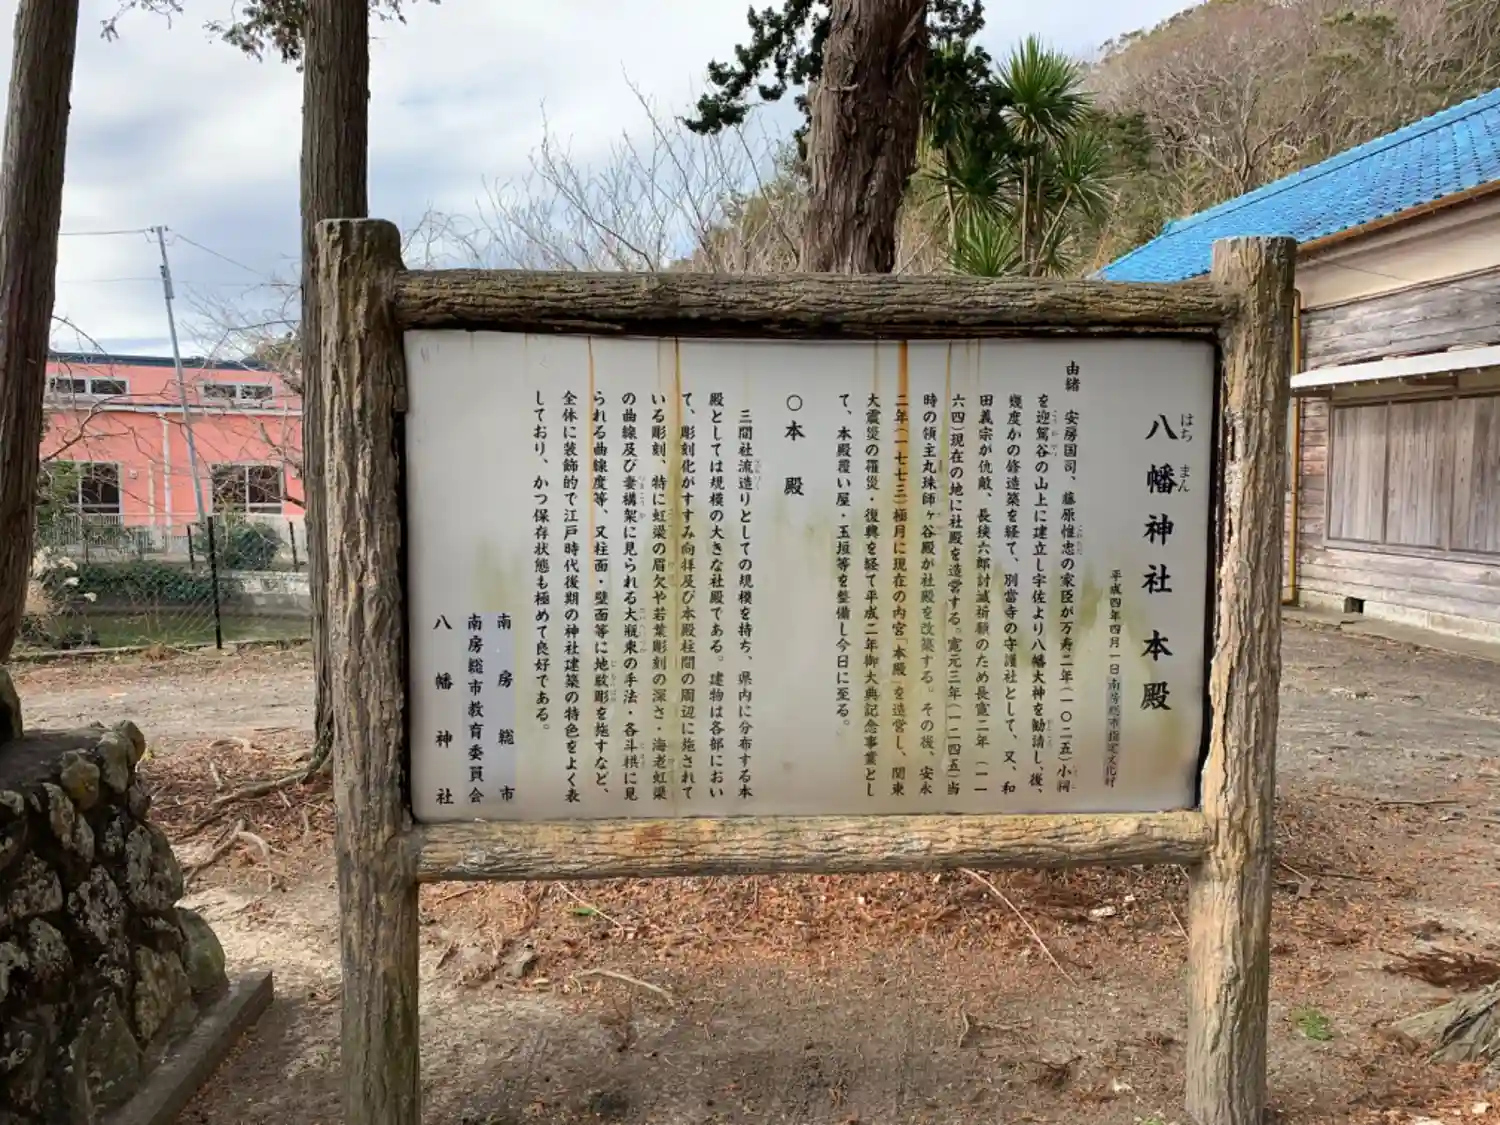 八幡神社本殿
はちまん
平成四年四月一日 南房総市指定文化財
由緒 安房国司、藤原惟忠の家臣が万寿二年(一〇二五)小祠
を迎篭谷の山上に建立し宇佐より八幡大神を勧請し、後、
幾度かの修造築を経て、別當寺の守護社として、又、和
田義宗が仇敵、長狭六郎討滅祈願のため長寛二年(一一
六四)現在の地に社殿を造営する。寛元三年(一二四五)当
時の領主丸珠師ヶ谷殿が社殿を改築する。その後、安永
二年(一七七三)極月に現在の内宮「本殿」を造営し、関東
大震災の罹災・復興を経て平成二年御大典記念事業とし
て、本殿覆い屋・玉垣等を整備し今日に至る。
〇本殿
三間社流造りとしての規模を持ち、県内に分布する本
殿としては規模の大きな社殿である。建物は各部におい
て、彫刻化がすすみ向拝及び本殿柱間の周辺に施されて
いる彫刻、特に虹梁の眉欠や若葉彫刻の深さ・海老虹梁
の曲線及び妻構架に見られる大瓶束の手法・各斗栱に見
られる曲線度等、又柱面・壁面等に地紋彫を施すなど、
全体に装飾的で江戸時代後期の神社建築の特色をよく表
しており、かつ保存状態も極めて良好である。
南房総市
南房総市教育委員会
八幡神社